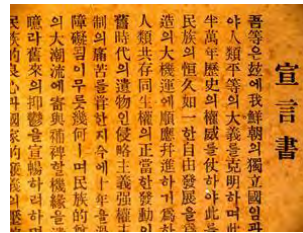 宣言書
吾等은玆에我鮮朝의獨立國임과
야人類平等의大義를克明하며此
半萬年歷史의權威를仗하야此를
民族의恒久如一한自由發展을爲
造의大機運에順應幷進하기爲하
人類共存同生權의正當한發動이
舊時代의遺物인侵略主義强權主
制의痛苦를嘗한지今에十年을過
障礙됨이무릇幾何ㅣ며民族的尊
의大潮流에寄與補裨할機緣을遺
臆라舊來의抑鬱을宣暢하려하면